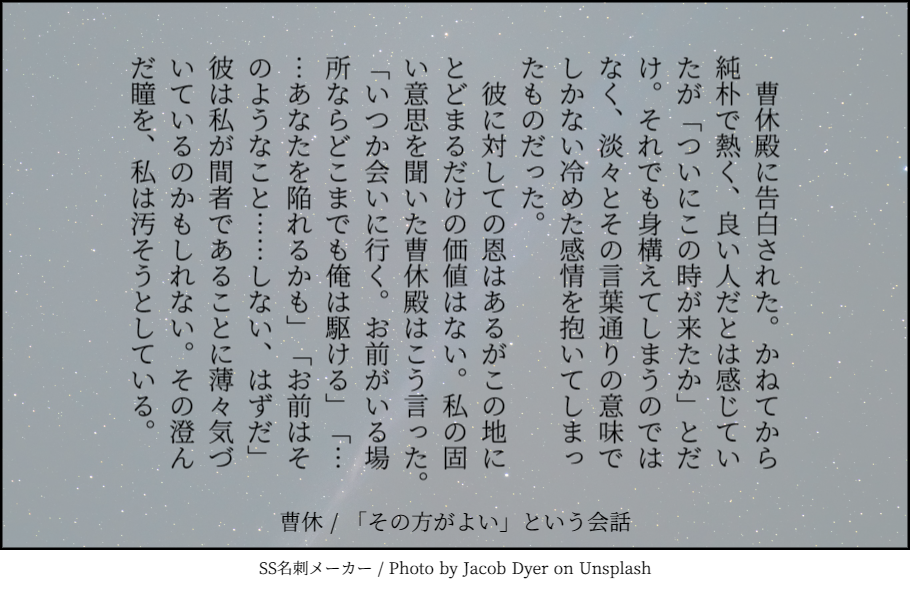 曹休殿に告白された。かねてから
純朴で熱く、良い人だとは感じてい
たが「ついにこの時が来たか」とだ
け。それでも身構えてしまうのでは
なく、淡々とその言葉通りの意味で
しかない冷めた感情を抱いてしまっ
たものだった。
　彼に対しての恩はあるがこの地に
とどまるだけの価値はない。私の固
い意思を聞いた曹休殿はこう言った。
「いつか会いに行く。お前がいる場
所ならどこまでも俺は駆ける」「…
…あなたを陥れるかも」「お前はそ
のようなこと……しない、はずだ」
彼は私が間者であることに薄々気づ
いているのかもしれない。その澄ん
だ瞳を、私は汚そうとしている。
曹休 / 「その方がよい」という会話
SS名刺メーカー / Photo by Jacob Dyer on Unsplash